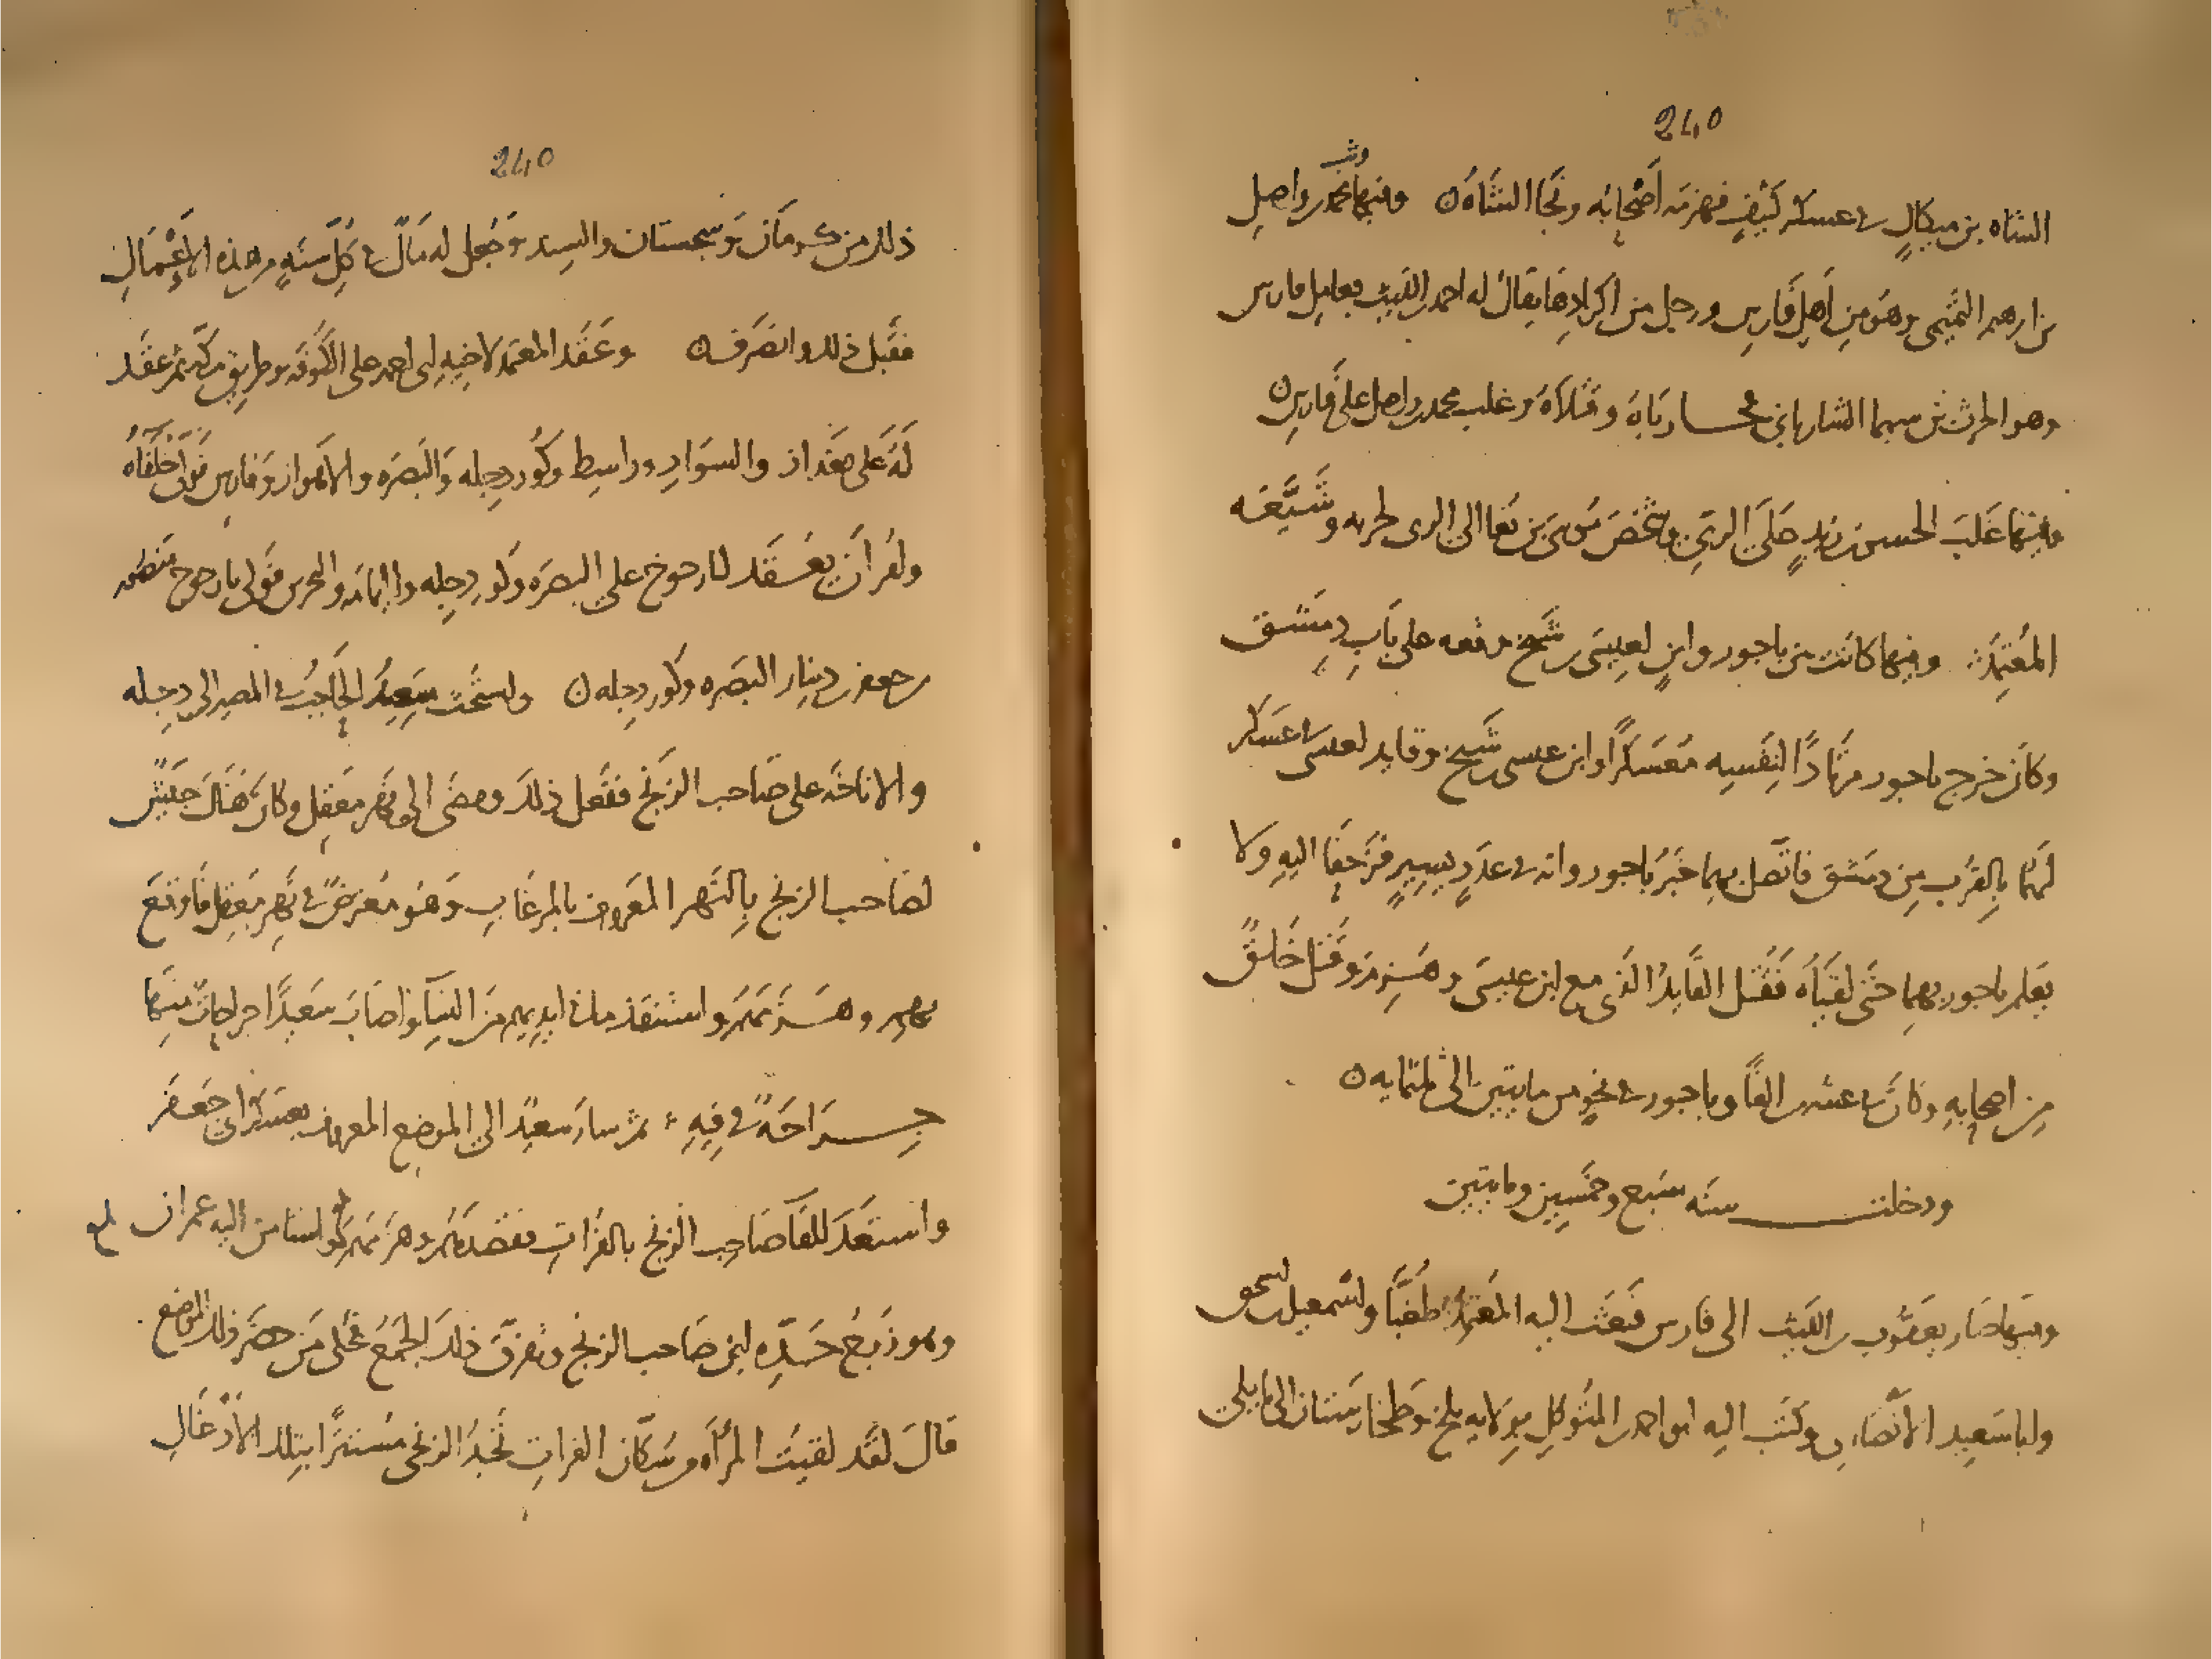 240
الشاه بن ميكال في عسكر كثيف فهزمه أصحابه ونجا الشاه ن وفيها وثب محمد بن واصل
بن ابرهيم التميمي وهو من أهل فارس ورجل من اكرادها يقال له احمد بن الليث بعامل فارس
وهو الحرث بن سيما الشارباني فحارباه وقتلاه وغلب محمد بن واصل على فارس ن
وفيها غلب الحسن بن زيد على الري وشخص موسى بن بغا الى الري لحربه وشيعه
المعتمد وفيها كانت بين باجور وابن لعيسى بن شيخ وقعه على باب دمشق
وكان خرج باجور مرتادًا لنفسه معسكرًا وابن عيسى بن شيخ وقايد لعيسى في عسكر
لهما بالقرب من دمشق فاتصل بهما خبر باجور وانه في عدد يسير فزحفا اليه ولا
يعلم باجور بهما حتى لقياه فقتل القايد الذي مع ابن عيسى وهزم وقتل خلق
من اصحابه وكان في عشرين الفًا وباجور في نحو من مايتين الى ثلثمايه ن
ودخلت سنه سبع وخمسين ومايتين
وفيها صار يعقوب بن الليث الى فارس فبعث اليه المعتمد طغبا واسمعيل بن اسحق
وابا سعيد الانصاري وكتب اليه ابو احمد بن المتوكل بولايه بلخ وطخارستان الى ما يلي
240
ذلك من كرمان وسجستان والسند وجعل له مال في كل سنه من هذه الاعمال
فقبل ذلك وانصرف ن وعقد المعتمد لاخيه ابي احمد على الكوفه وطريق مكه ثم عقد
له على بغداد والسواد وواسط وكور دجله والبصره والاهواز وفارس فولى خلفاه
وامر ان يعقد ليارجوخ على البصره وكور دجله واليمامه والبحرين فولى يارجوخ منصور
بن جعفر بن دينار البصره وكور دجله ن واستحث سعيد الحاجب في المصير الى دجله
والاناخه على صاحب الزنج ففعل ذلك ومضى الى نهر معقل وكان هناك جيش
لصاحب الزنج بالنهر المعروف بالمرغاب وهو معترض في نهر معقل فاوقع
بهم وهزمهم واستنقذ ما في ايديهم من النسا واصاب سعيدًا جراحات منها
جراحة في فيه ثم سار سعيد الى الموضع المعروف بعسكر ابي جعفر
واستعد للقا صاحب الزنج بالفرات فقصدهم وهزمهم واستامن اليه عمران
وهو زوج جدة ابن صاحب الزنج وتفرق ذلك الجمع فحكى من حضر ذلك الموضع
قال لقد لقيت المرأه من سكان الفرات تجد الزنجي مستترًا بتلك الادغال